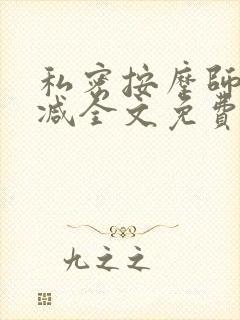 私密按摩師
减全文免費
九之之